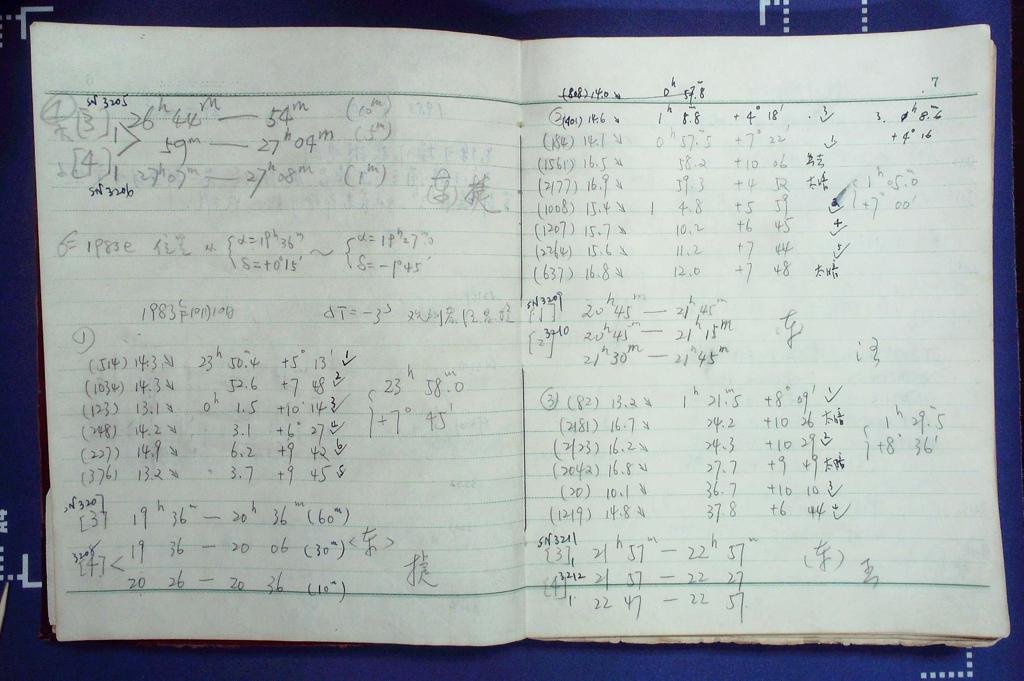 SN 3205
[3] 26ʰ 44ᵐ — 54ᵐ (10ᵐ)
59ᵐ — 27ʰ 04ᵐ (5ᵐ)
[4] 27ʰ 07ᵐ — 27ʰ 08ᵐ (1ᵐ)
SN 3206
1983e 位置 { α=19ʰ36ᵐ ~ { α=19ʰ27ᵐ0
δ=+0°15′ δ=-1°45′
1983年10月10日 ΔT=-3ˢ
①
(514) 14.3 ↘ 23ʰ 50ᵐ.4 +5° 13′ 1
(1034) 14.3 ↘ 52.6 +7 48 2
(123) 13.1 ↘ 0ʰ 1.5 +10° 14 3
(248) 14.2 ↘ 3.1 +6° 27 4
(227) 14.9 ↘ 6.2 +9 42 6
(376) 13.2 ↘ 3.7 +9 45 5
{ 23ʰ 58ᵐ.0
+7° 45′
SN 3207
[3] 19ʰ 36ᵐ — 20ʰ 36ᵐ (60ᵐ)
3208
[4] < 19 36 — 20 06 (30ᵐ) <东>
20 26 — 20 36 (10ᵐ)
7
(808) 14.0 ↘ 0ʰ 57ᵐ.8
② (401) 14.6 ↘ 1ʰ 5ᵐ.8 +4° 18′ ✓
(184) 14.1 ↘ 0ʰ 57ᵐ.5 +7° 22′
(1561) 16.5 ↘ 58.2 +10 06
(2177) 16.9 ↘ 59.3 +4 52 太暗
(1008) 15.4 ↘ 1 4.8 +5 59
(1207) 15.7 ↘ 10.2 +6 45 4
(2264) 15.6 ↘ 11.2 +7 44 5
(637) 16.8 ↘ 12.0 +7 48 太暗
+4° 16
{ 1ʰ 05ᵐ.0
+7° 00′
SN 3209
[1] 20ʰ45ᵐ — 21ʰ45ᵐ
3210
[2] 20ʰ45ᵐ — 21ʰ15ᵐ 东
21ʰ30ᵐ — 21ʰ45ᵐ
③ (82) 13.2 ↘ 1ʰ 21ᵐ.5 +8° 09′ 1
(2181) 16.7 ↘ 24.2 +10 26 太暗
(2123) 16.2 ↘ 24.3 +10 29 2
(2042) 16.8 ↘ 27.7 +9 49 太暗
(20) 10.1 ↘ 36.7 +10 10 3
(1219) 14.8 ↘ 37.8 +6 44 4
{ 1ʰ 29ᵐ.5
+8° 36′
SN 3211
[3] 21ʰ 57ᵐ — 22ʰ 57ᵐ (东)
3212
[4] 21 57 — 22 27
22 47 — 22 57